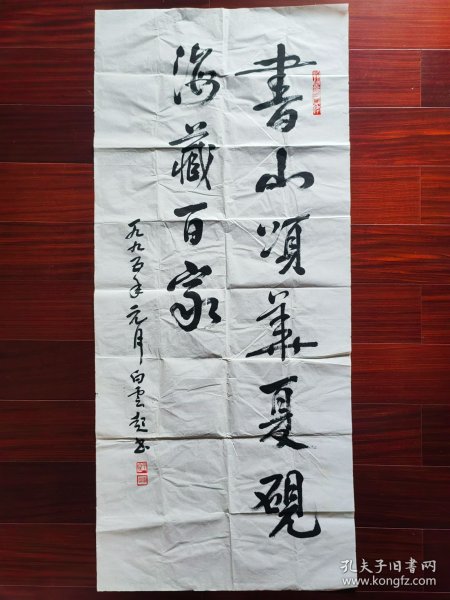 書山頌華夏硯
海藏百家
一九九五年元月白雲起書
孔夫子旧书网
www.kongfz.com